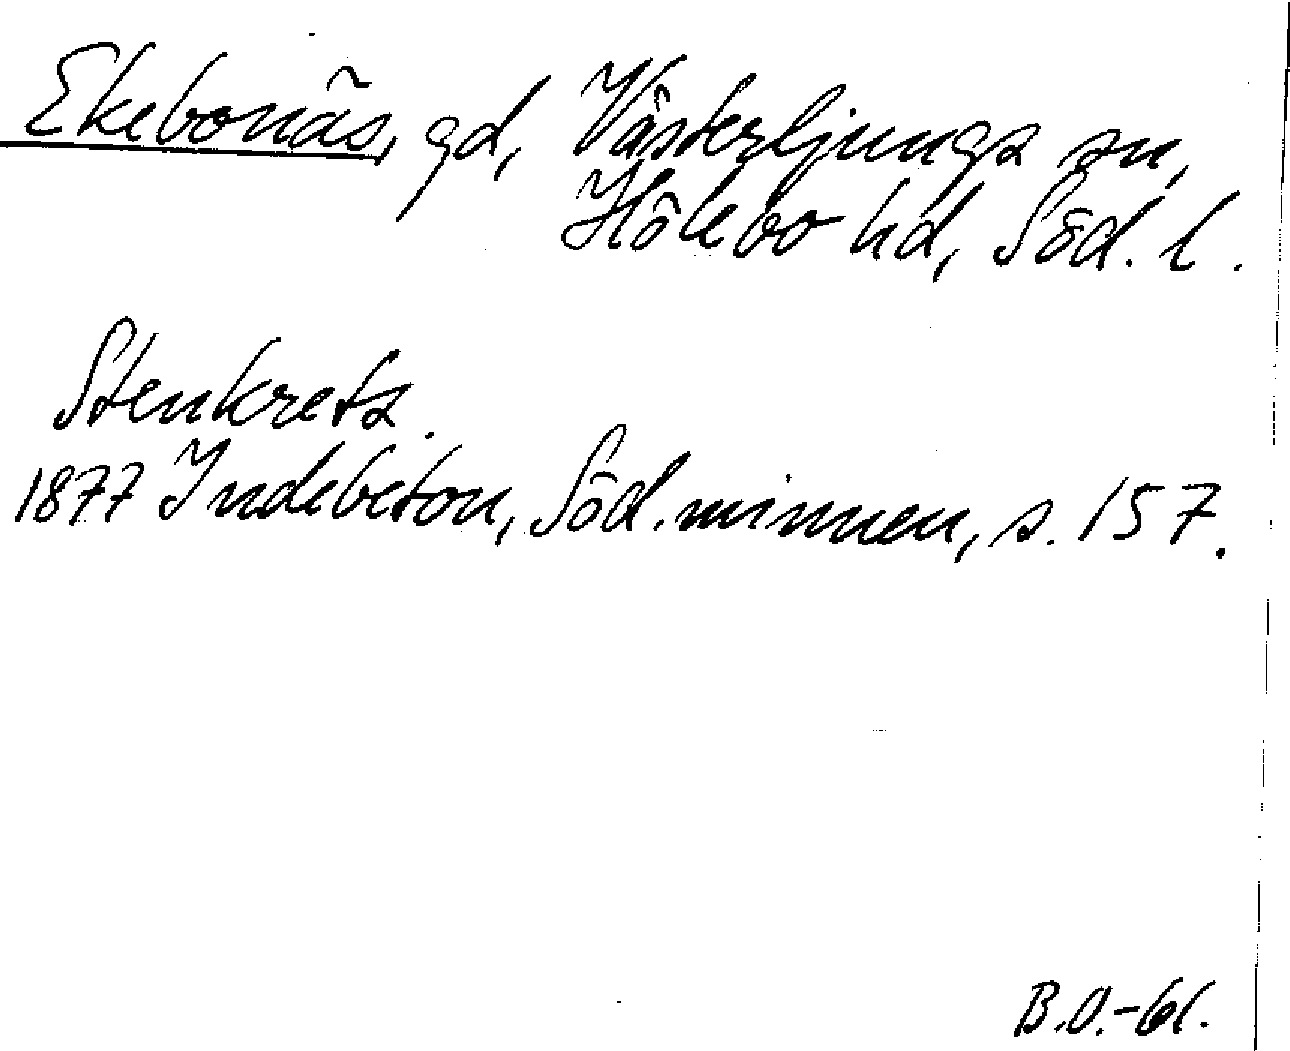 Ekebonäs, gd, Västerljungs sn,
Hölebo hd, Söd. l.
Stenkrets.
1877 Indebetou, Söd. minnen, s. 157.
B.O.-61.